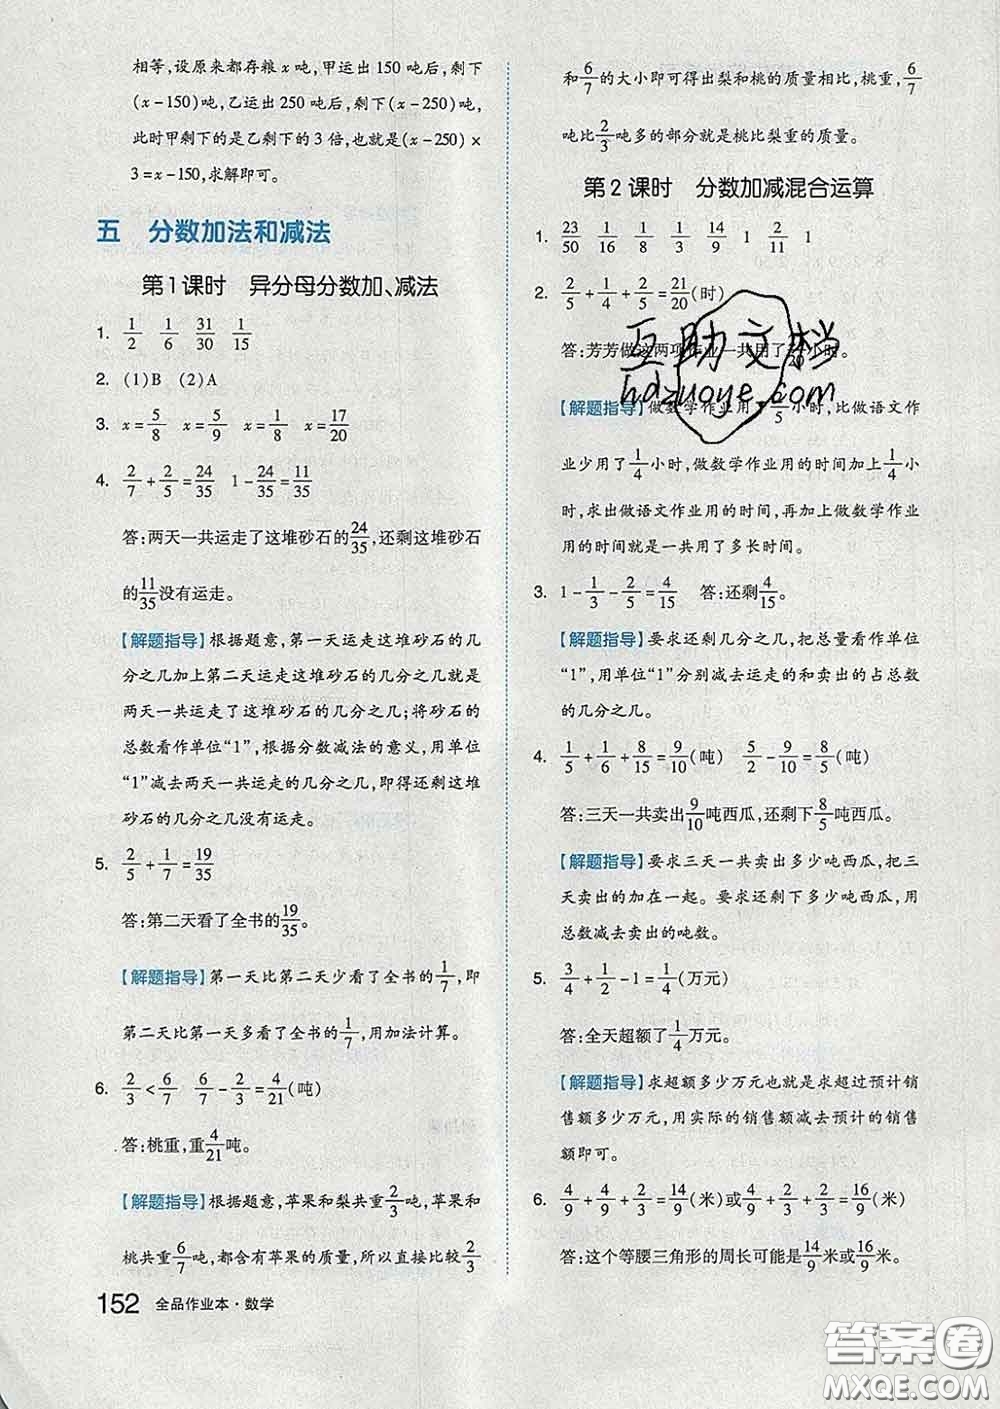 相等,设原来都存粮 x 吨,甲运出 150 吨后,剩下
(x-150)吨,乙运出 250 吨后,剩下(x-250)吨,
此时甲剩下的是乙剩下的 3 倍,也就是(x-250)×
3=x-150,求解即可。
五 分数加法和减法
第1课时 异分母分数加、减法
1. 1/2 1/6 31/30 1/15
2. (1)B (2)A
3. x=5/8 x=5/9 x=1/8 x=17/20
4. 2/7+2/5=24/35 1-24/35=11/35
答:两天一共运走了这堆砂石的24/35,还剩这堆砂石
的11/35没有运走。
【解题指导】根据题意,第一天运走这堆砂石的几
分之几加上第二天运走这堆砂石的几分之几就是
两天一共运走了这堆砂石的几分之几;将砂石的
总数看作单位“1”,根据分数减法的意义,用单位
“1”减去两天一共运走的几分之几,即得还剩这堆
砂石的几分之几没有运走。
5. 2/5+1/7=19/35
答:第二天看了全书的19/35。
【解题指导】第一天比第二天少看了全书的1/7,即
第二天比第一天多看了全书的1/7,用加法计算。
6. 2/3<6/7 6/7-2/3=4/21(吨)
答:桃重,重4/21吨。
【解题指导】根据题意,苹果和梨共重2/3吨,苹果和
桃共重6/7吨,都含有苹果的质量,所以直接比较2/3
152 全品作业本·数学
和6/7的大小即可得出梨和桃的质量相比,桃重,6/7
吨比2/3吨多的部分就是桃比梨重的质量。
第2课时 分数加减混合运算
1. 23/50 1/16 1/8 1/3 14/9 1 2/11 1
2. 2/5+1/4+2/5=21/20(时)
答:芳芳做这两项作业一共用了21/20小时。
【解题指导】做数学作业用了2/5小时,比做语文作
业少用了1/4小时,做数学作业用的时间加上1/4小
时,求出做语文作业用的时间,再加上做数学作业
用的时间就是一共用了多长时间。
3. 1-1/3-2/5=4/15 答:还剩4/15。
【解题指导】要求还剩几分之几,把总量看作单位
“1”,用单位“1”分别减去运走的和卖出的占总数
的几分之几。
4. 1/5+1/6+8/15=9/10(吨) 5/2-9/10=8/5(吨)
答:三天一共卖出9/10吨西瓜,还剩下8/5吨西瓜。
【解题指导】要求三天一共卖出多少吨西瓜,把三
天卖出的加在一起。要求还剩下多少吨西瓜,用
总数减去卖出的吨数。
5. 3/4+1/2-1=1/4(万元)
答:全天超额了1/4万元。
【解题指导】求超额多少万元也就是求超过预计销
售额多少万元,用实际的销售额减去预计的销售
额即可。
6. 4/9+4/9+2/3=14/9(米)或4/9+2/3+2/3=16/9(米)
答:这个等腰三角形的周长可能是14/9米或16/9米。
互助文档
hdzuoye.com
答案圈
MXQE.COM